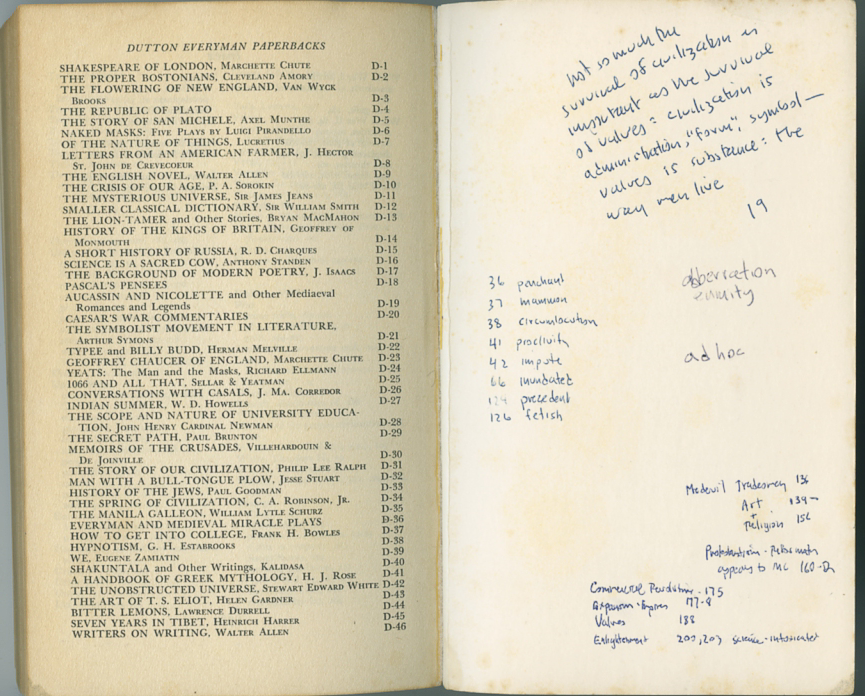 DUTTON EVERYMAN PAPERBACKS
SHAKESPEARE OF LONDON, Marchette Chute D-1
THE PROPER BOSTONIANS, Cleveland Amory D-2
THE FLOWERING OF NEW ENGLAND, Van Wyck
Brooks D-3
THE REPUBLIC OF PLATO D-4
THE STORY OF SAN MICHELE, Axel Munthe D-5
NAKED MASKS: Five Plays by Luigi Pirandello D-6
OF THE NATURE OF THINGS, Lucretius D-7
LETTERS FROM AN AMERICAN FARMER, J. Hector
St. John de Crevecoeur D-8
THE ENGLISH NOVEL, Walter Allen D-9
THE CRISIS OF OUR AGE, P. A. Sorokin D-10
THE MYSTERIOUS UNIVERSE, Sir James Jeans D-11
SMALLER CLASSICAL DICTIONARY, Sir William Smith D-12
THE LION-TAMER and Other Stories, Bryan MacMahon D-13
HISTORY OF THE KINGS OF BRITAIN, Geoffrey of
Monmouth D-14
A SHORT HISTORY OF RUSSIA, R. D. Charques D-15
SCIENCE IS A SACRED COW, Anthony Standen D-16
THE BACKGROUND OF MODERN POETRY, J. Isaacs D-17
PASCAL'S PENSEES D-18
AUCASSIN AND NICOLETTE and Other Mediaeval
Romances and Legends D-19
CAESAR'S WAR COMMENTARIES D-20
THE SYMBOLIST MOVEMENT IN LITERATURE,
Arthur Symons D-21
TYPEE and BILLY BUDD, Herman Melville D-22
GEOFFREY CHAUCER OF ENGLAND, Marchette Chute D-23
YEATS: The Man and the Masks, Richard Ellmann D-24
1066 AND ALL THAT, Sellar & Yeatman D-25
CONVERSATIONS WITH CASALS, J. Ma. Corredor D-26
INDIAN SUMMER, W. D. Howells D-27
THE SCOPE AND NATURE OF UNIVERSITY EDUCA-
TION, John Henry Cardinal Newman D-28
THE SECRET PATH, Paul Brunton D-29
MEMOIRS OF THE CRUSADES, Villehardouin &
De Joinville D-30
THE STORY OF OUR CIVILIZATION, Philip Lee Ralph D-31
MAN WITH A BULL-TONGUE PLOW, Jesse Stuart D-32
HISTORY OF THE JEWS, Paul Goodman D-33
THE SPRING OF CIVILIZATION, C. A. Robinson, Jr. D-34
THE MANILA GALLEON, William Lytle Schurz D-35
EVERYMAN AND MEDIEVAL MIRACLE PLAYS D-36
HOW TO GET INTO COLLEGE, Frank H. Bowles D-37
HYPNOTISM, G. H. Estabrooks D-38
WE, Eugene Zamiatin D-39
SHAKUNTALA and Other Writings, Kalidasa D-40
A HANDBOOK OF GREEK MYTHOLOGY, H. J. Rose D-41
THE UNOBSTRUCTED UNIVERSE, Stewart Edward White D-42
THE ART OF T. S. ELIOT, Helen Gardner D-43
BITTER LEMONS, Lawrence Durrell D-44
SEVEN YEARS IN TIBET, Heinrich Harrer D-45
WRITERS ON WRITING, Walter Allen D-46
not so much the
survival of civilization is
important as the survival
of values: civilization is
administration, "form", symbol—
values is substance: the
way men live
19
36 penchant
37 mammon
38 circumlocution
41 proclivity
42 impute
66 inundated
124 precedent
126 fetish
abberration
enmity
ad hoc
Medevil Tradesmen 136
Art 134-
+
Religion 156
Protestantism - Reformation
appeals to MC 160-
Commercial Revolution - 175
Expansion - Empires 177-8
Values 188
Enlightenment 200, 203 science-intoxicated